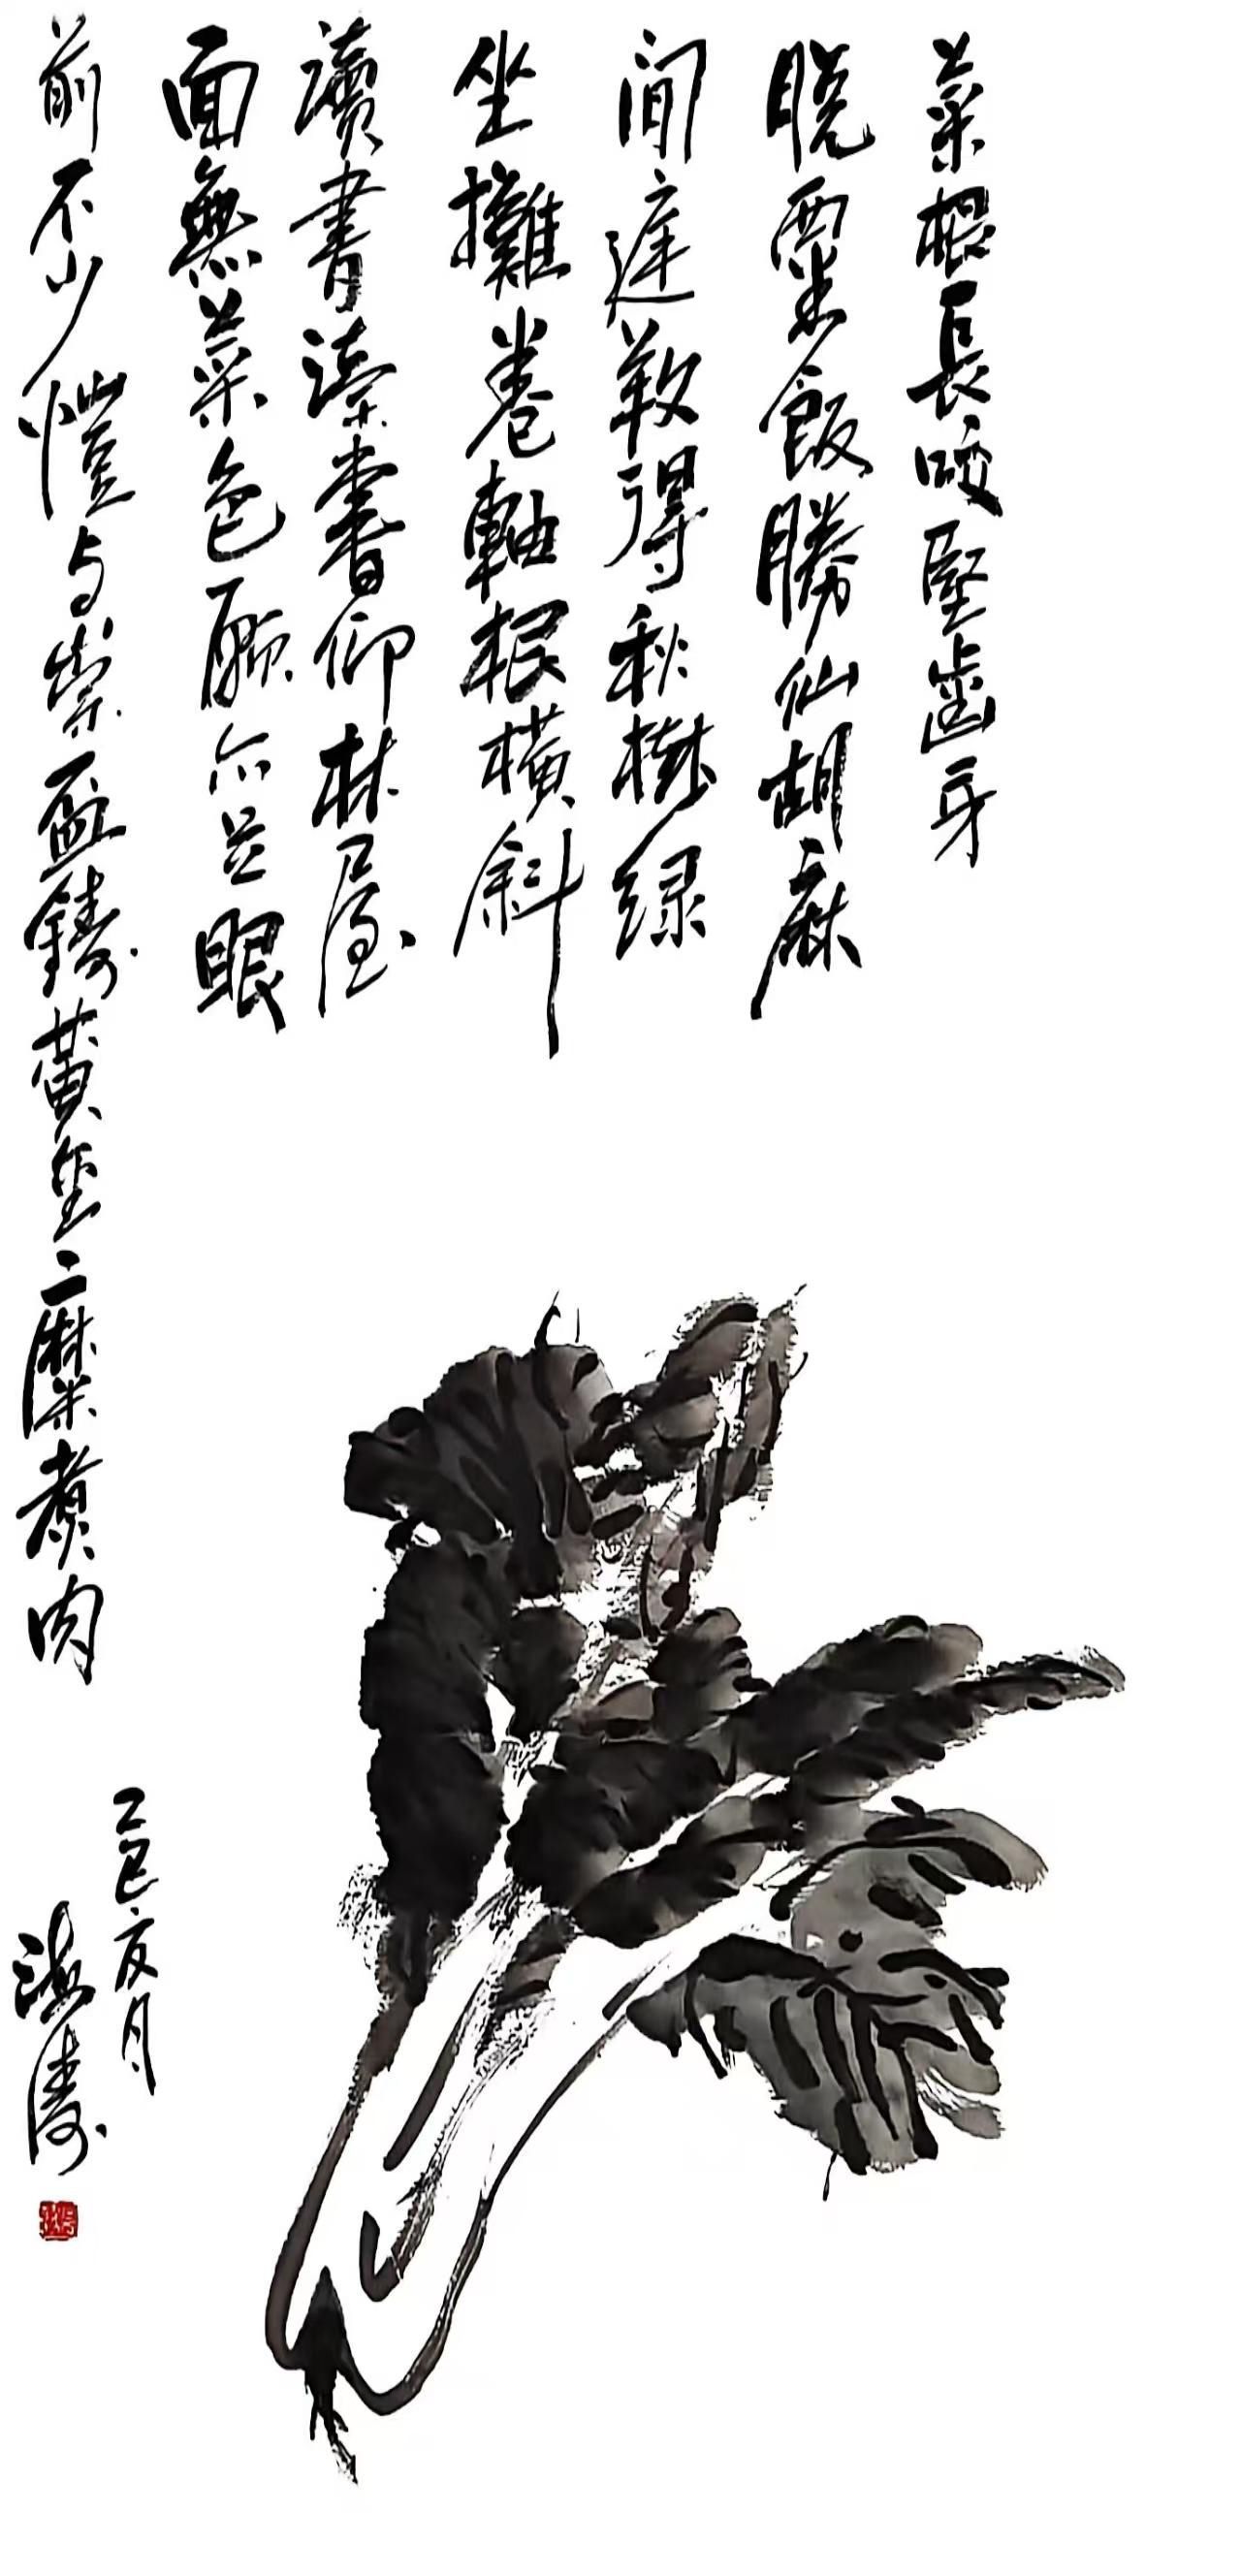 菜根長咬堅齒牙
脱粟飯勝仙胡麻
閒庭養得秋樹綠
坐攤卷軸根橫斜
讀書讀書仰林屋
面無菜色願亦足眼
前不少愷与崇盃鑄黃金糜煮肉
乙巳夏月
海濤